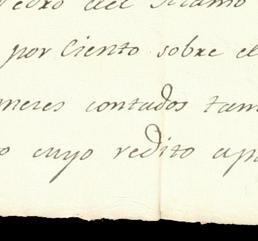 Pedro del Alamo
por Ciento sobre el
neres contados tam
o cuyo redito apa